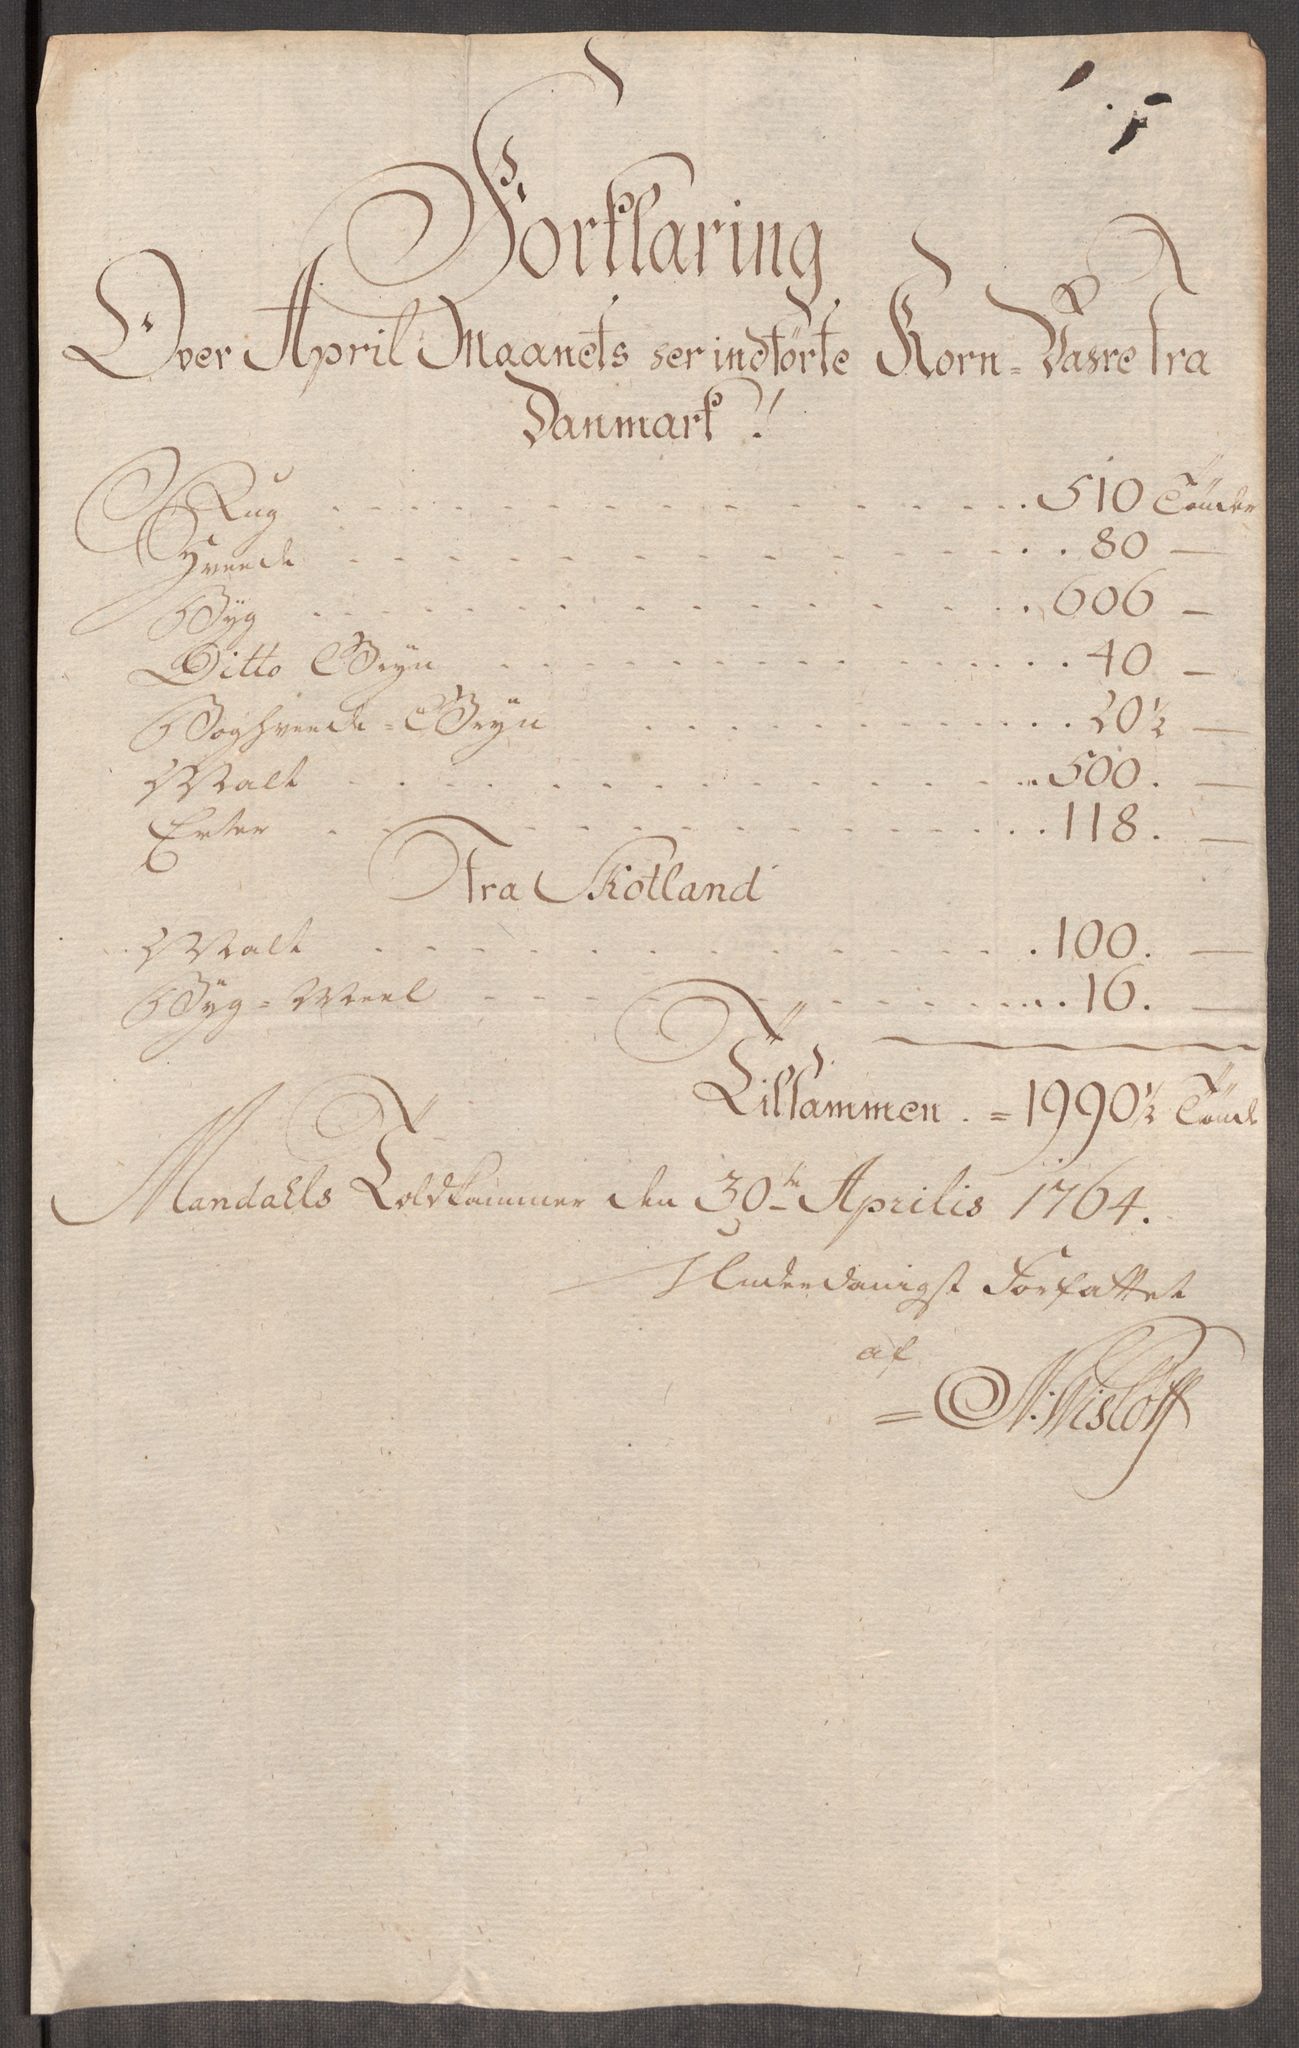 Forklaring
Over April Maanets her indførte Korn=Vahre fra
Danmark!
Rug . . . 510 Tønder
Hvede . . . 80 —
Byg . . . 606 —
Ditto Gryn . . . 40 —
Boghvede=Gryn . . . 20½ —
Malt . . . 500. —
Erter . . . 118. —
fra Skotland
Malt . . . 100. —
Byg=Meel . . . 16. —
Tilsammen . = 1990½ Tønde
Mandahls Toldkammer den 30te Aprilis 1764.
Underdanigst Forfattet
af
N: Wisløff